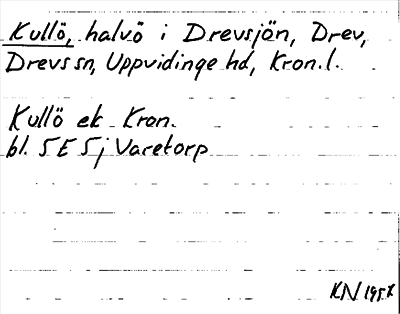 Kullö, halvö i Drevsjön, Drev,
Drevs sn, Uppvidinge hd, Kron.l.
Kullö ek Kron.
bl. 5E5j Varetorp
KN